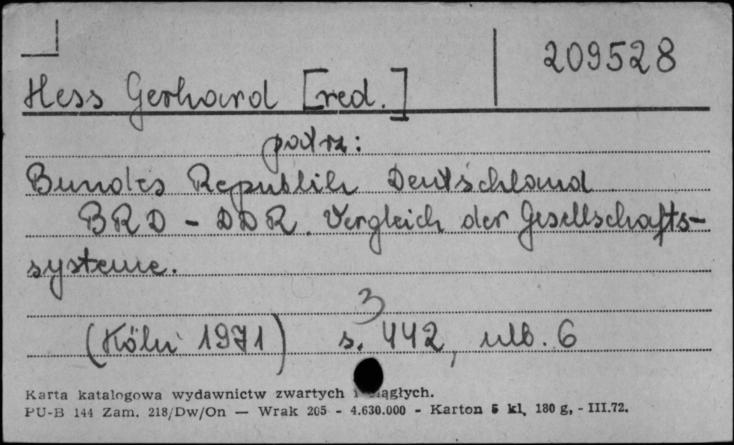 209528
Hess Gerhard [red.]
patrz:
Bundes Republik Deutschland
BRD - DDR. Vergleich der Gesellschafts-
systeme.
3
(Köln 1971) s. 442, ulb. 6
Karta katalogowa wydawnictw zwartych i ciągłych.
PU-B 144 Zam. 218/Dw/On — Wrak 205 - 4.630.000 - Karton 5 kl, 180 g, - III.72.